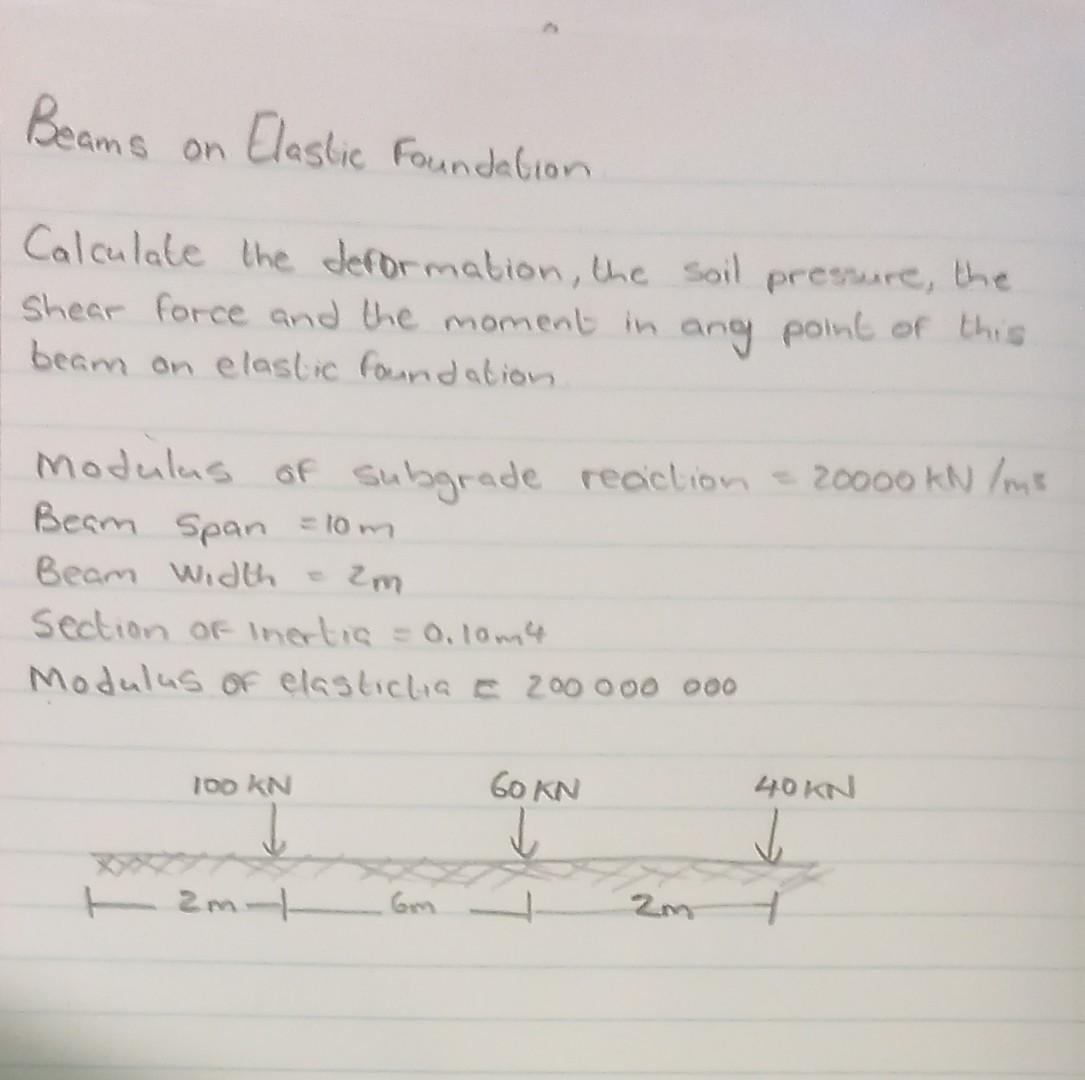 Beams on Elastic Foundation
Calculate the deformation, the soil pressure, the
shear force and the moment in any point of this
beam on elastic foundation
Modulus of subgrade reaction = 20000 kN/m3
Beam span = 10 m
Beam width = 2m
Section of Inertia = 0.10m4
Modulus of elasticlia = 200 000 000
100 kN 60 KN 40 KN
2m 6m 2m